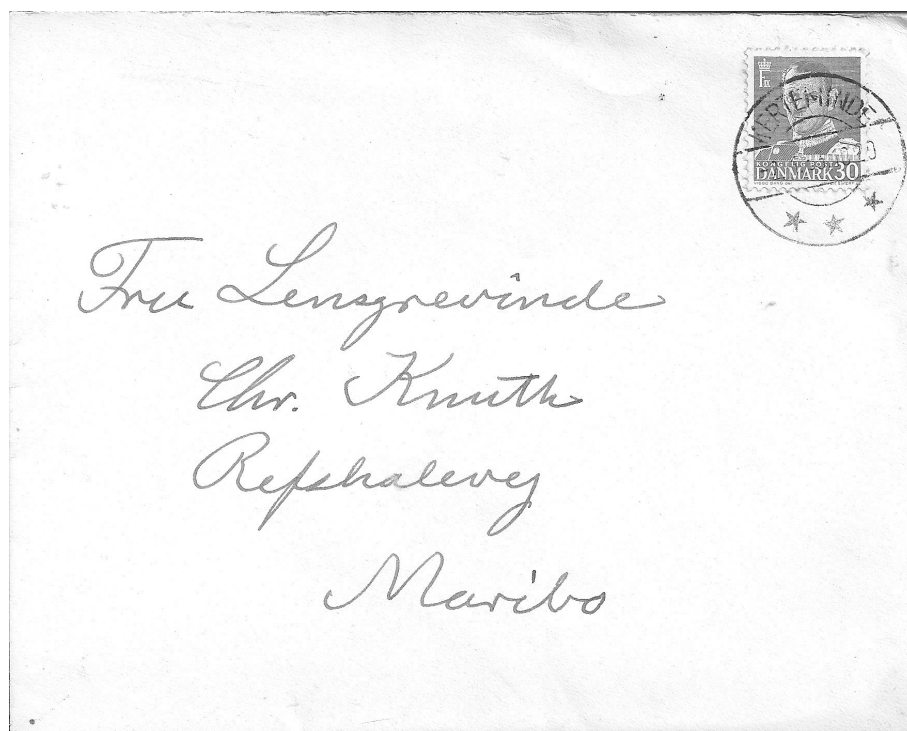 KERTEMINDE
KONGELIG POST
DANMARK 30
Fru Lensgrevinde
Chr. Knuth
Refshalevej
Maribo